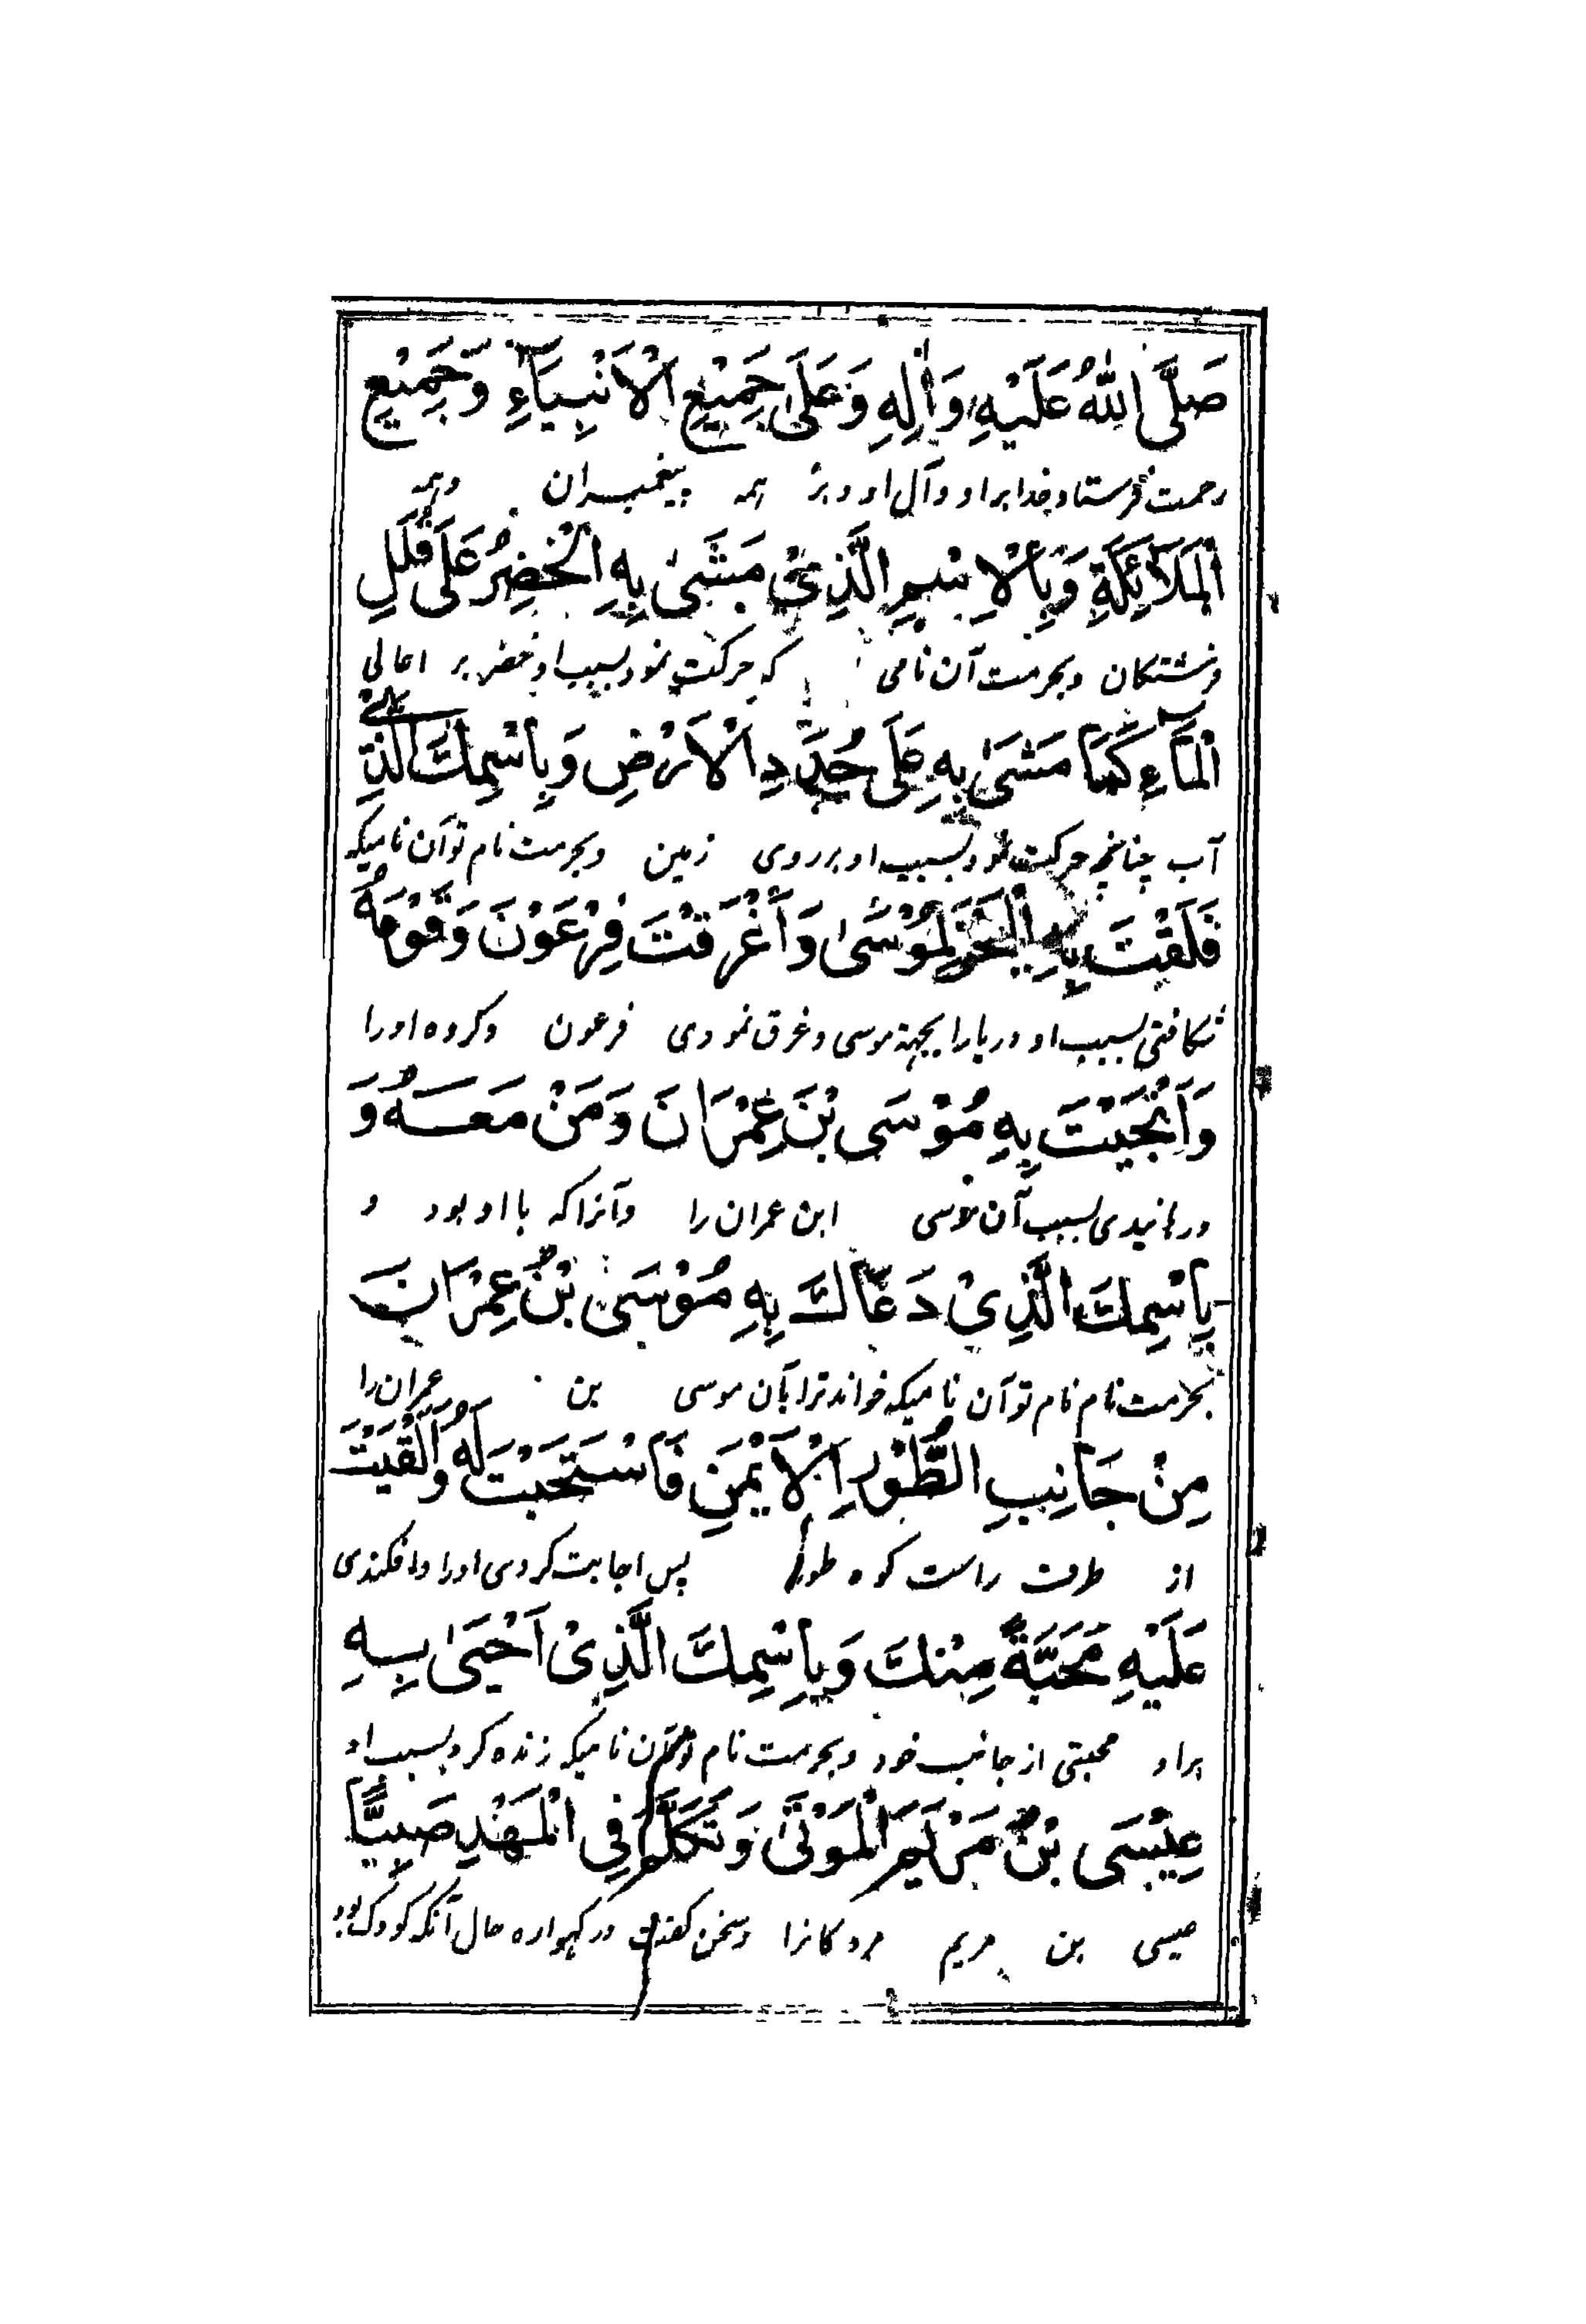 صَلَّی اللّٰهُ عَلَیْهِ وَاٰلِهِ وَعَلٰی جَمِیْعِ الْاَنْبِیَآءِ وَجَمِیْعِ
رحمت فرستاد خدا براو وآل او وبر همه پیغمبران وهمه
الْمَلَآئِکَةِ وَبِالْاِسْمِ الَّذِیْ مَشَیٰ بِهِ الْخَضِرُ عَلَی قُلَلِ
فرشتکان وبحرمت آن نامی که حرکت نمود بسبب او خضر بر اعالی
الْمَآءِ کَمَا مَشَیٰ بِهِ عَلَی جُدَدِ الْاَرْضِ وَبِاسْمِكَ الَّذِیْ
آب چنانچه حرکت نمود بسبب او برروی زمین وبحرمت نام تو آن نامیکه
فَلَقْتَ بِهِ الْبَحْرَ لِمُوْسٰی وَاَغْرَقْتَ فِرْعَوْنَ وَقَوْمَهُ
شکافتی بسبب او دریا را بجهة موسی وغرق نمودی فرعون وکروه اورا
وَاَنْجَیْتَ بِهِ مُوْسَی بْنَ عِمْرَانَ وَمَنْ مَعَهُ وَ
ورهانیدی بسبب آن موسی ابن عمران را وآنراکه بااو بود و
بِاسْمِكَ الَّذِیْ دَعَاكَ بِهِ مُوْسَی بْنُ عِمْرَانَ
بحرمت نام نام تو آن نامیکه خواند ترا بآن موسی بن عمران را
مِنْ جَانِبِ الطُّوْرِ الْاَیْمَنِ فَاسْتَجَبْتَ لَهُ وَاَلْقَیْتَ
از طرف راست کوه طور پس اجابت کردی اورا وافکندی
عَلَیْهِ مَحَبَّةً مِنْكَ وَبِاسْمِكَ الَّذِیْ اَحْیَیٰ بِهِ
براو محبتی از جانب خود وبحرمت نام آن نامیکه زنده کرد بسبب او
عِیْسَی بْنُ مَرْیَمَ الْمَوْتٰی وَتَکَلَّمَ فِی الْمَهْدِ صَبِیًّا
عیسی بن مریم مردکانرا وسخن کفت در کهواره حال آنکه کودک بود